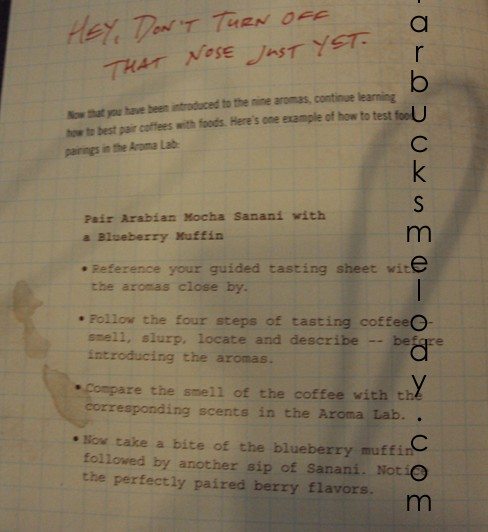 HEY, DON'T TURN OFF
THAT NOSE JUST YET.
Now that you have been introduced to the nine aromas, continue learning
how to best pair coffees with foods. Here's one example of how to test food
pairings in the Aroma Lab:
Pair Arabian Mocha Sanani with
a Blueberry Muffin
• Reference your guided tasting sheet with
the aromas close by.
• Follow the four steps of tasting coffee --
smell, slurp, locate and describe -- before
introducing the aromas.
• Compare the smell of the coffee with the
corresponding scents in the Aroma Lab.
• Now take a bite of the blueberry muffin
followed by another sip of Sanani. Notice
the perfectly paired berry flavors.
arbucksmelody.com